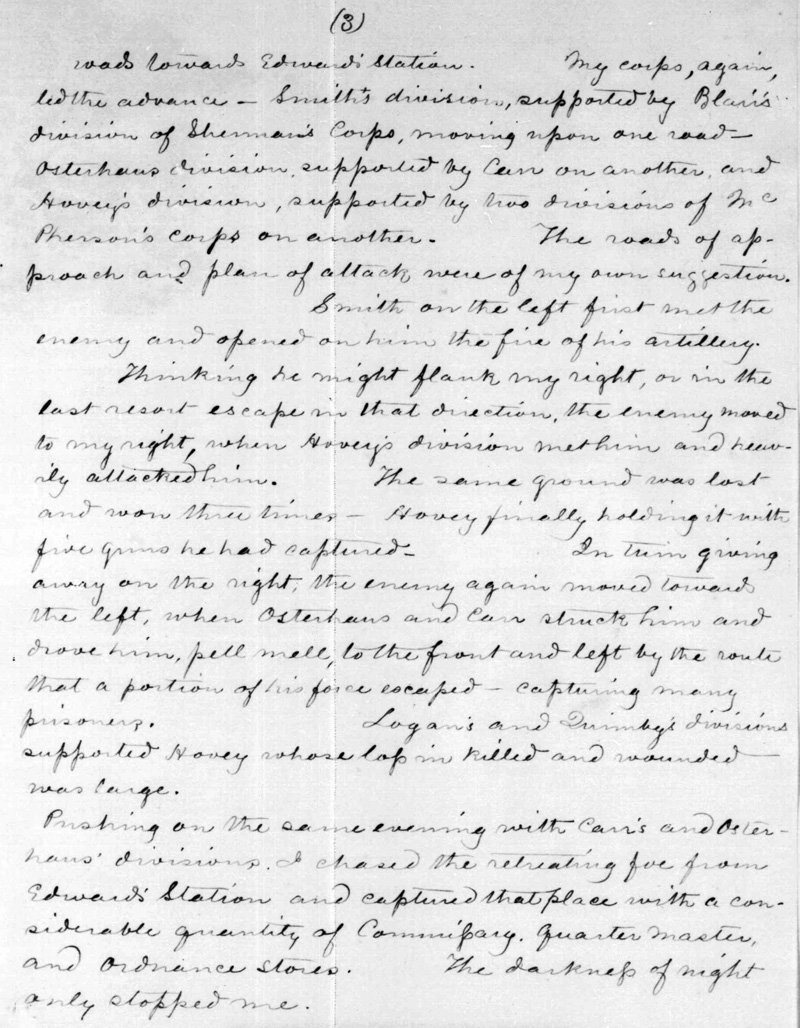 (3)
roads towards Edwards' Station. My corps, again,
led the advance – Smith's division, supported by Blair's
division of Sherman's Corps, moving upon one road –
Osterhaus division, supported by Carr on another, and
Hovey's division, supported by two divisions of Mc
Pherson's corps on another. The roads of ap-
proach and plan of attack were of my own suggestion.
Smith on the left first met the
enemy and opened on him the fire of his artillery.
Thinking he might flank my right, or in the
last resort escape in that direction, the enemy moved
to my right, when Hovey's division met him and heav-
ily attacked him. The same ground was lost
and won three times – Hovey finally holding it with
five guns he had captured – In turn giving
away on the right, the enemy again moved towards
the left, when Osterhaus and Carr struck him and
drove him, pell mell, to the front and left by the route
that a portion of his force escaped – capturing many
prisoners. Logan's and Quimby's divisions
supported Hovey whose loss in killed and wounded
was large.
Pushing on the same evening with Carr's and Oster-
haus' divisions, I chased the retreating foe from
Edwards' Station and captured that place with a con-
siderable quantity of Commissary, Quarter Master,
and Ordnance Stores. The darkness of night
only stopped me.